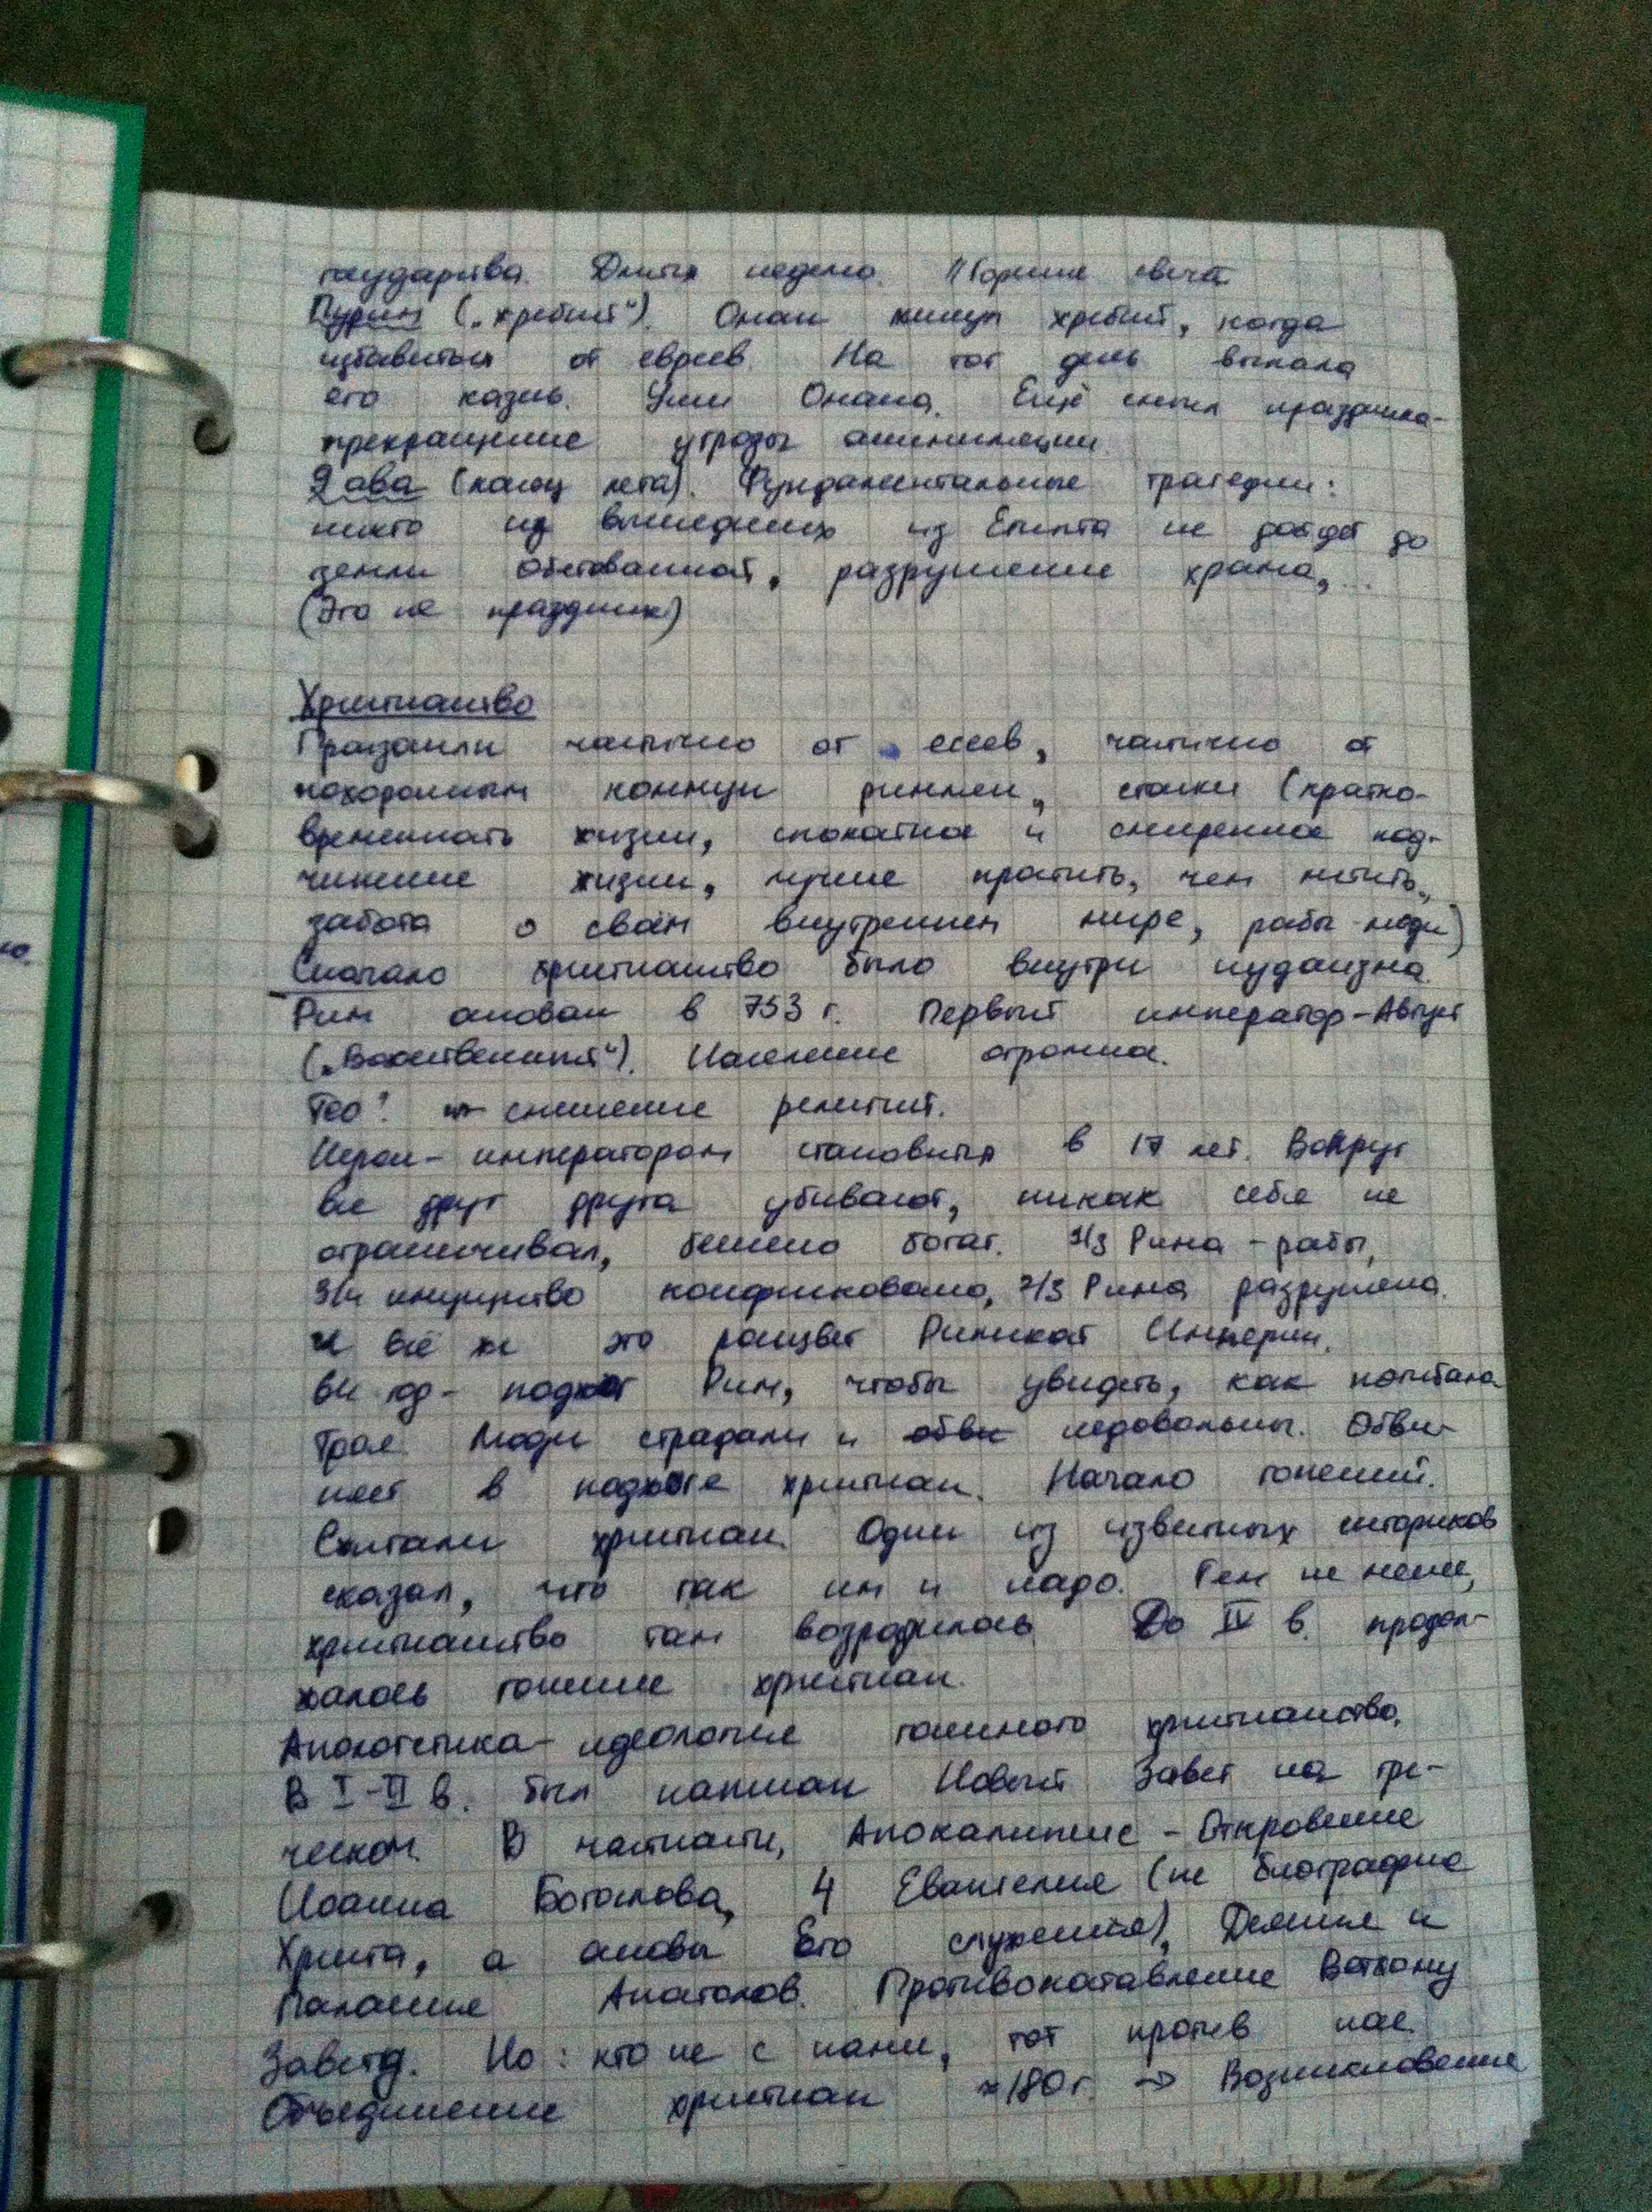 государства. Длится неделю. Горение свечей
Пурим („жребий“). Онан кинул жребий, когда
избавиться от евреев. На тот день выпала
его казнь. Уши Онана. Ещё смысл праздника-
прекращение угрозы ассимиляции.
9 ава (конец лета). Фундаментальные трагедии:
никто из вышедших из Египта не дойдет до
земли обетованной, разрушение храма,...
(Это не праздник)
Христианство
Произошли частично от ессев, частично от
похоронным коммун римлян, стоики (кратко-
временность жизни, спокойное и смиренное под-
чинение жизни, лучше простить, чем мстить,
забота о своём внутреннем мире, рабы-люди)
Сначало христианство было внутри иудаизма.
Рим основан в 753 г. Первый император-Август
(„Божественный“). Население огромное.
Гео: смешение религий.
Нерон- императором становится в 17 лет. Вокруг
все друг друга убивают, никак себя не
ограничивал, бешено богат. 1/3 Рима - рабы,
3/4 имущество конфисковано, 2/3 Рима разрушена.
И всё же это расцвет Римской Империи.
64 год- поджог Рим, чтобы увидеть, как погибала
Троя. Люди страдали и обви недовольны. Обви-
няет в поджоге христиан. Начало гонений.
Сжигали христиан. Один из известных историков
сказал, что так им и надо. Тем не менее,
христианство там возродилось. До IV в. продол-
жалось гонение христиан.
Апологетика- идеология гонимого христианство.
В I-II в. был написан Новый Завет на гре-
ческом. В частности, Апокалипсис - Откровение
Иоанна Богослова, 4 Евангелия (не биография
Христа, а основы Его служения), Деяния и
Послания Апостолов. Противопоставление Ветхому
Завету. Но: кто не с нами, тот против нас.
Объединение христиан ≈180 г. → Возникновение